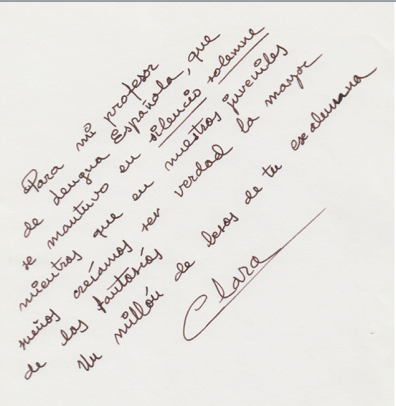 Para mi profesor
de Lengua Española, que
se mantuvo en silencio solemne
mientras que en nuestros juveniles
sueños creíamos ser verdad la mayor
de las fantasías
Un millón de besos de tu exalumna
Clara